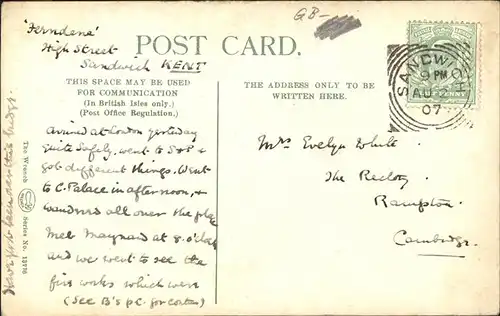 'Ferndene'
High Street
Sandwich KENT
GB-
POST CARD.
THIS SPACE MAY BE USED
FOR COMMUNICATION
(In British Isles only.)
(Post Office Regulation.)
THE ADDRESS ONLY TO BE
WRITTEN HERE.
SANDWICH
9 PM
AU
07
Arrived at London yesterday
quite safely, went to S&P &
got different things. Went
to C. Palace in afternoon, &
wandered all over the place
Met Maynard at 8.0'clock
and we went to see the
fire works which were
(See B's p.c. for contn)
Mrs Evelyn White
The Rectory
Rampton
Cambridge.
The Wrench Series No. 13776